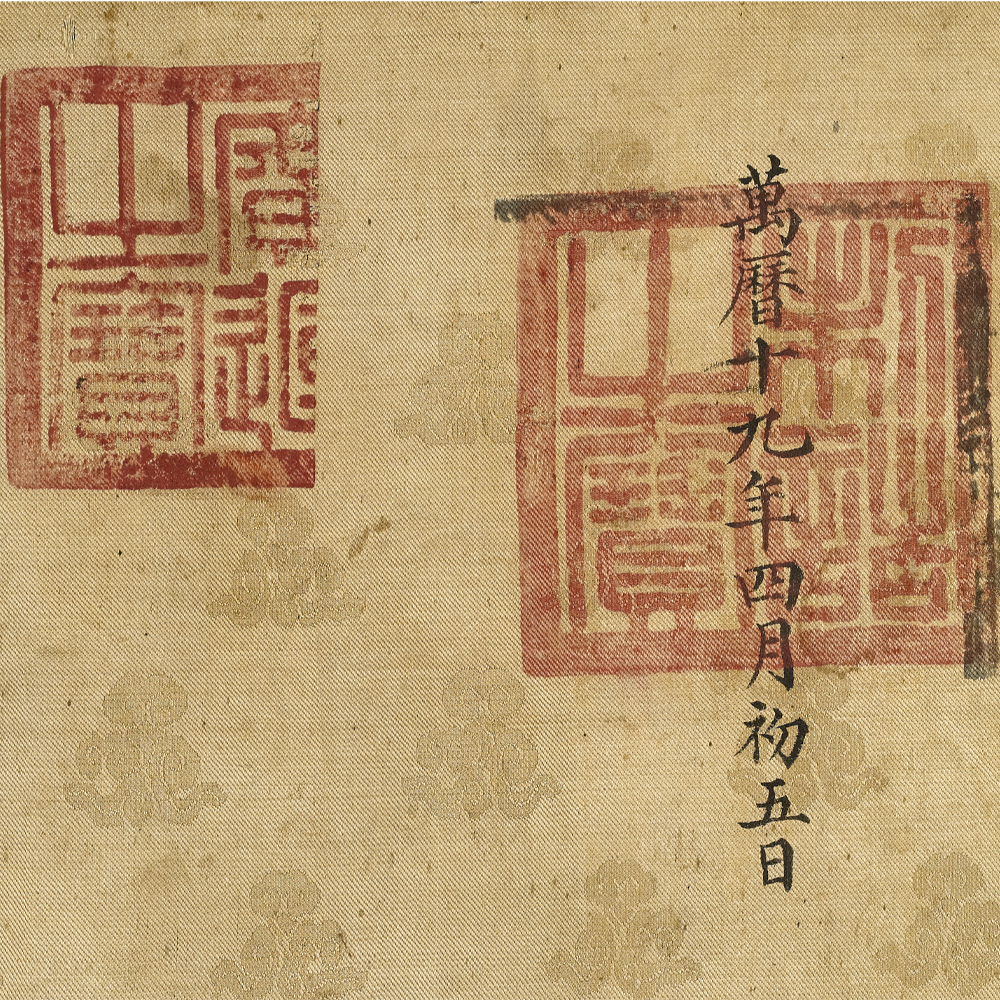 萬曆十九年四月初五日
制誥
之寶
廣運
之寶